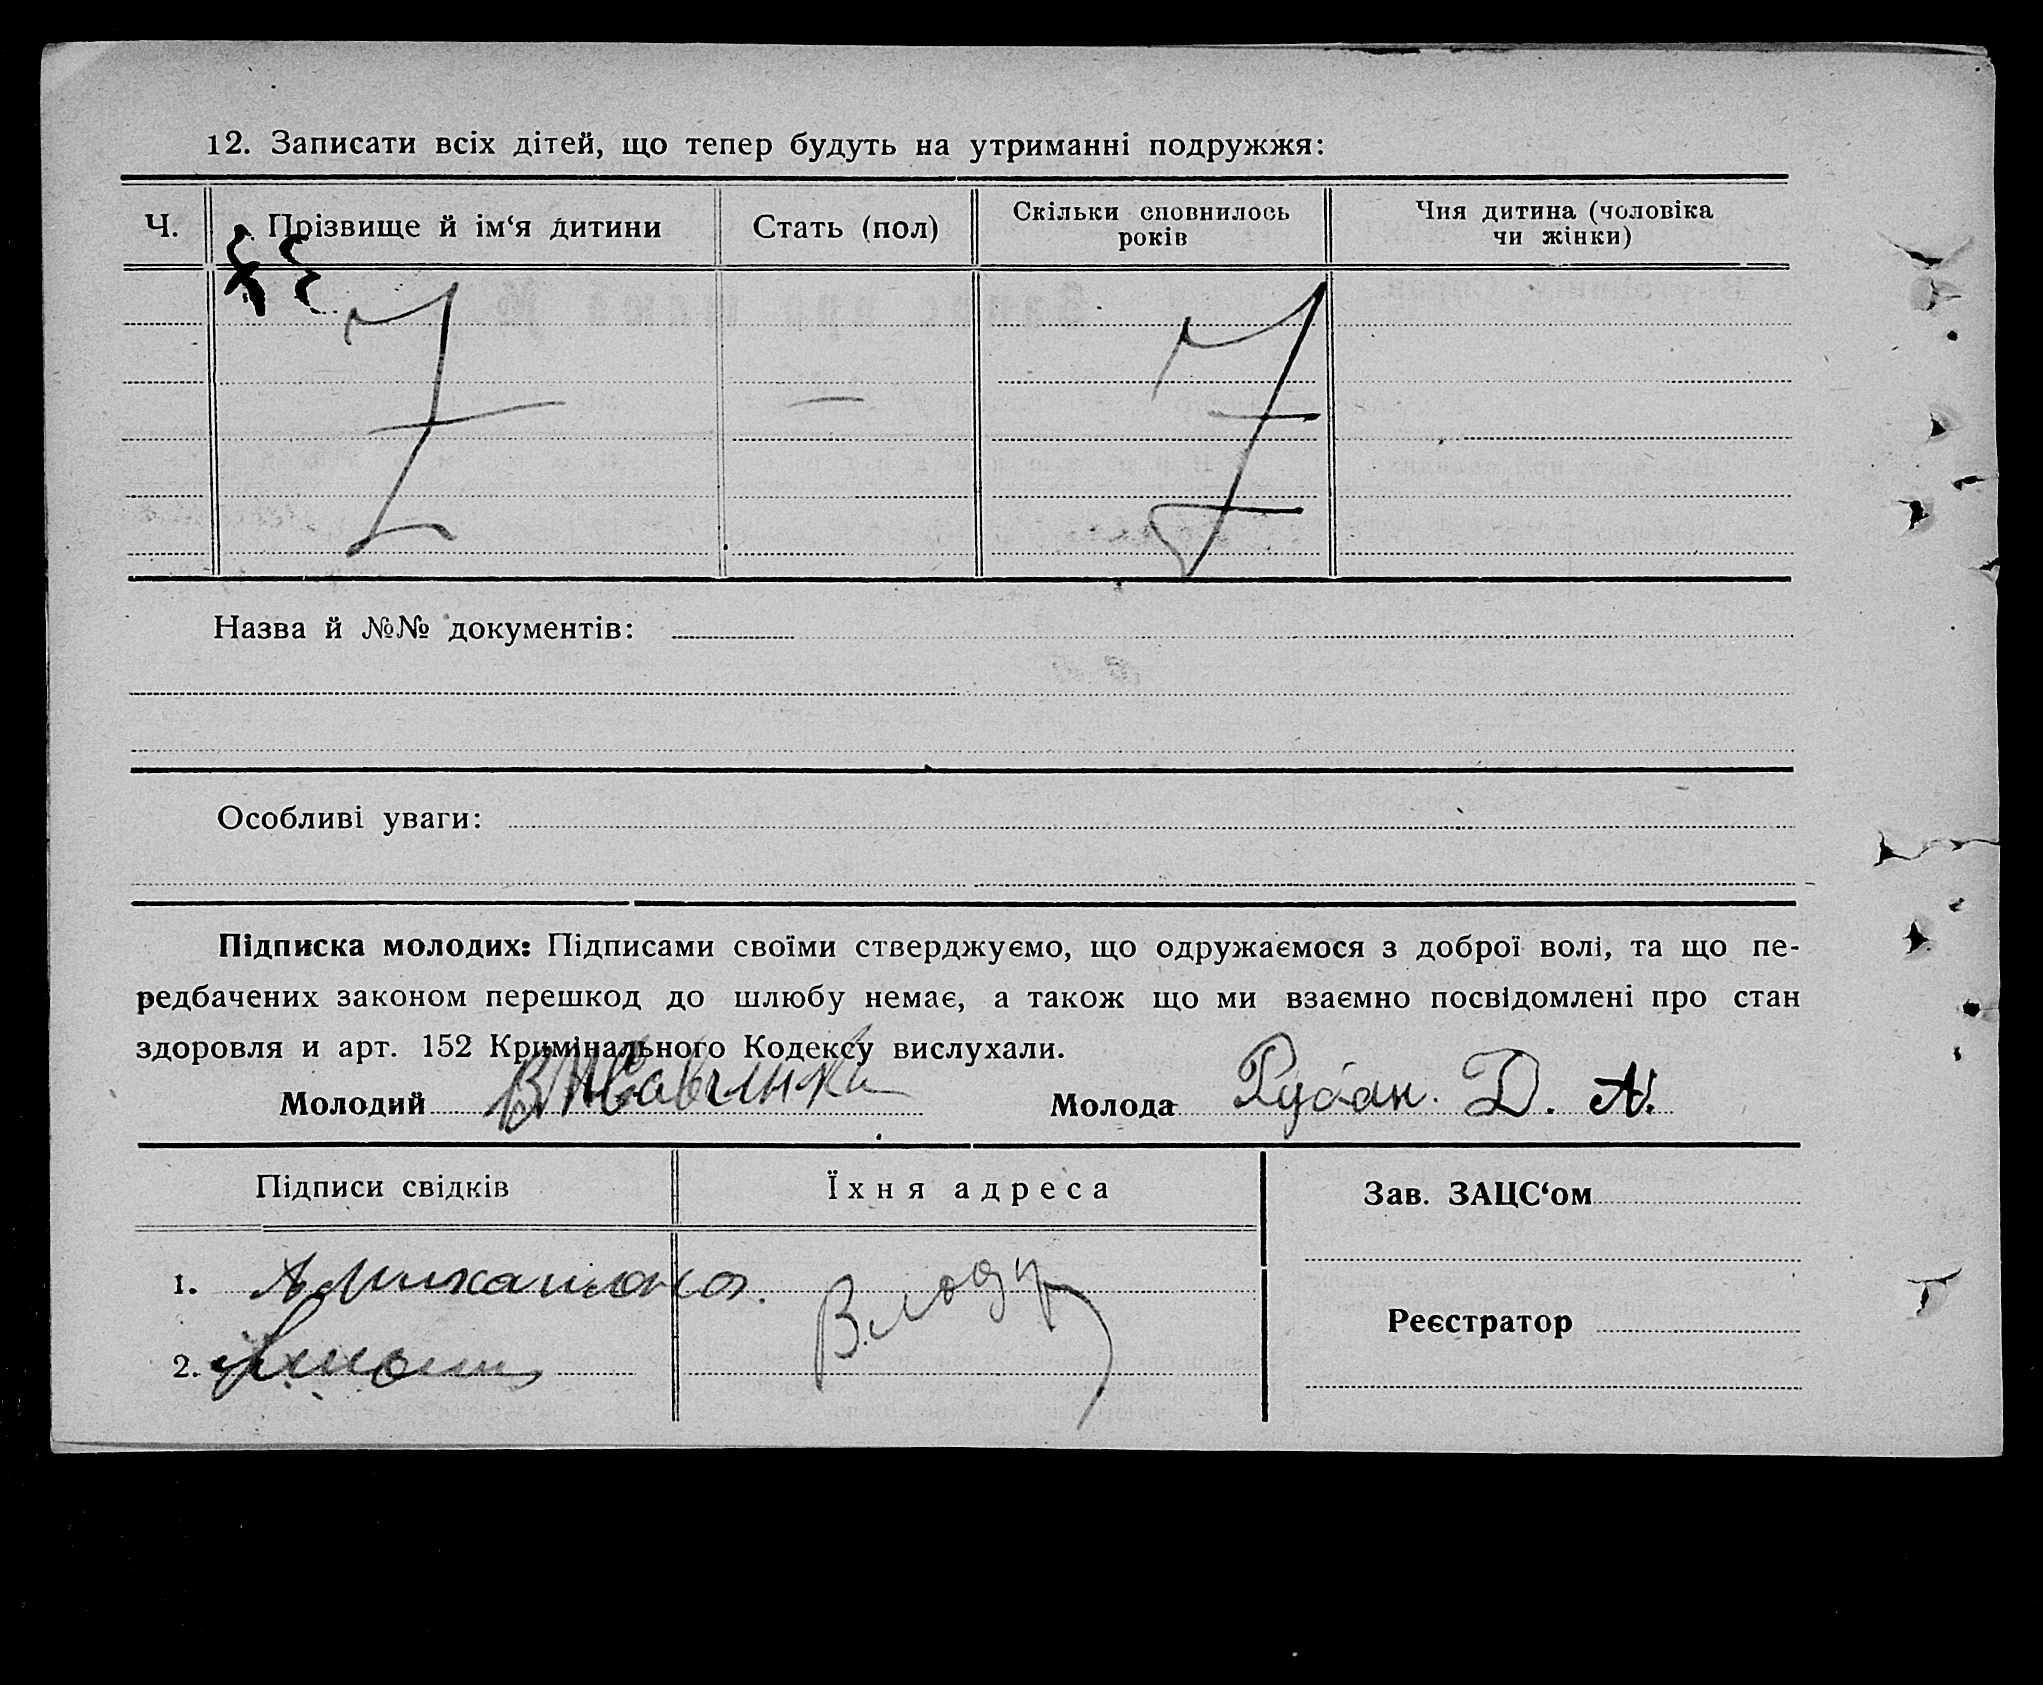 12. Записати всіх дітей, що тепер будуть на утриманні подружжя:
Ч. Прізвище й ім‘я дитини Стать (пол) Скільки сповнилось років Чия дитина (чоловіка чи жінки)
Назва й №№ документів:
Особливі уваги:
Підписка молодих: Підписами своїми стверджуємо, що одружаємося з доброї волі, та що пе-
редбачених законом перешкод до шлюбу немає, а також що ми взаємно посвідомлені про стан
здоровля и арт. 152 Кримінального Кодексу вислухали.
Молодий Молода Рубан. Д. А.
Підписи свідків Їхня адреса Зав. ЗАЦС‘ом
1.
Реєстратор
2.